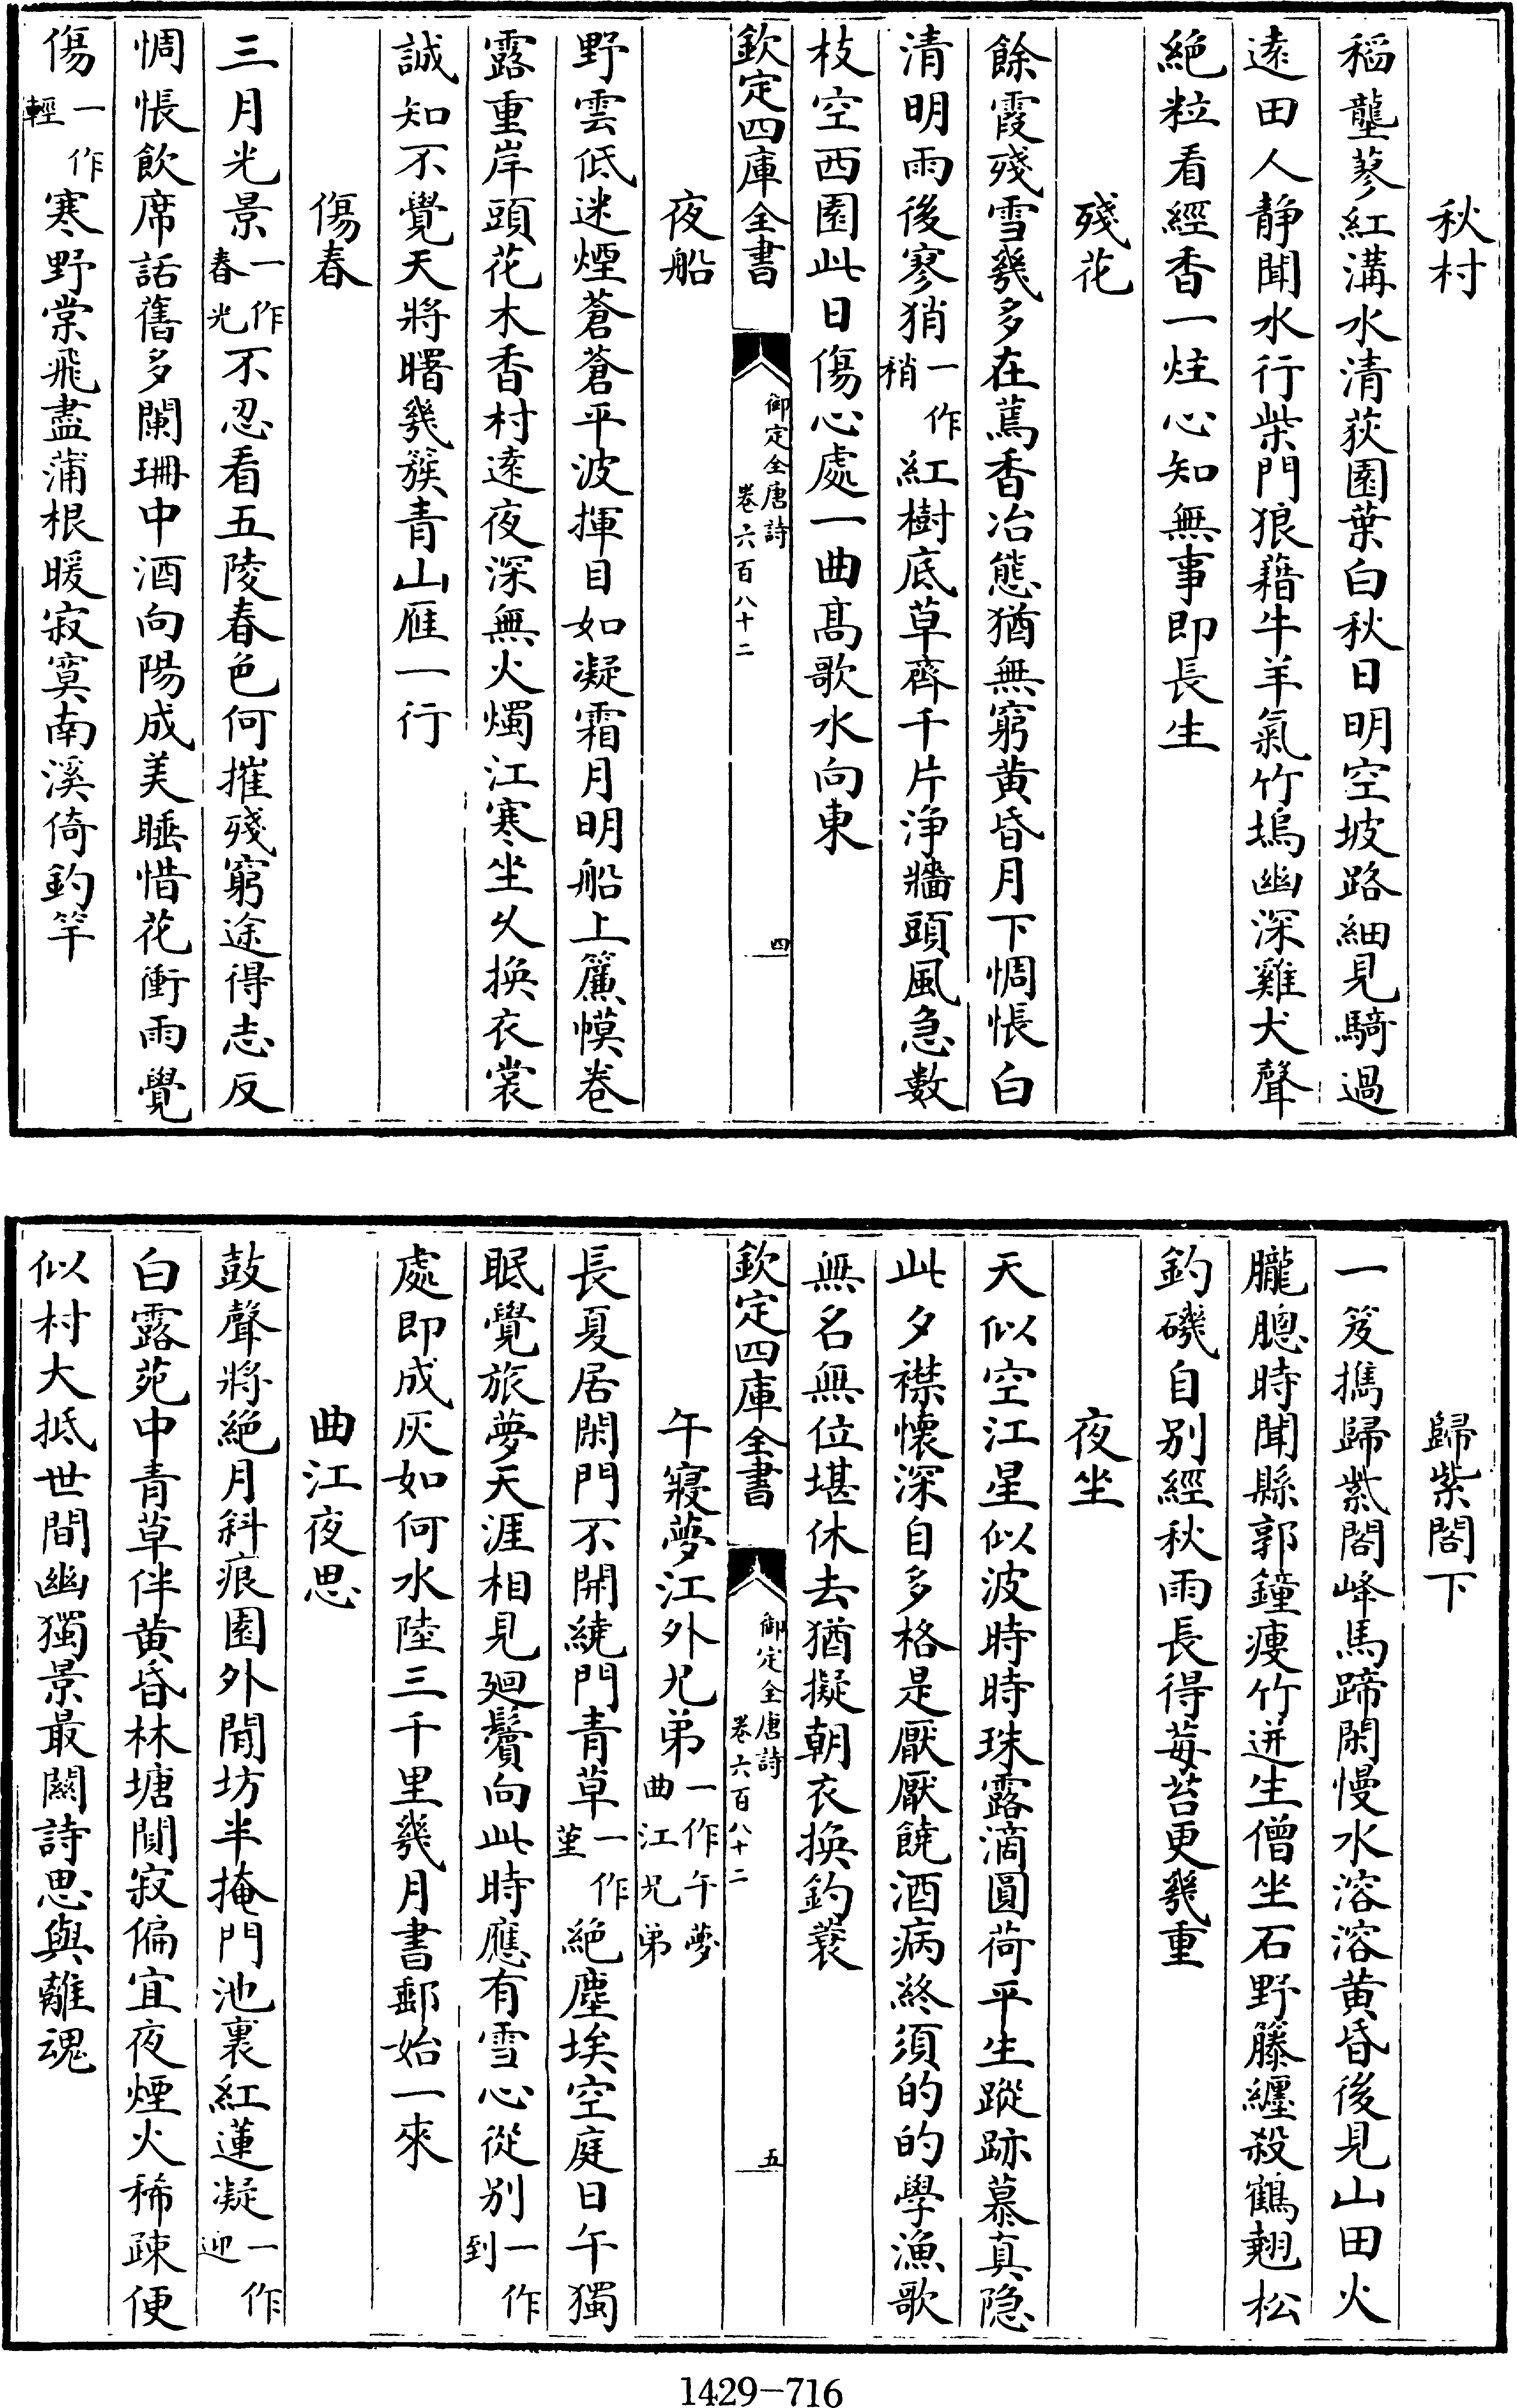 秋村
稻壟蓼紅溝水清荻園葉白秋日明空坡路細見騎過
遠田人静聞水行柴門狼藉牛羊氣竹塢幽深雞犬聲
絶粒看經香一炷心知無事即長生
殘花
餘霞殘雪幾多在蔫香冶態猶無窮黄昏月下惆悵白
清明雨後寥梢一作稍紅樹底草齊千片浄牆頭風急數
枝空西園此日傷心處一曲髙歌水向東
欽定四庫全書 御定全唐詩 卷六百八十二 四
夜船
野雲低迷煙蒼蒼平波揮目如凝霜月明船上簾幙卷
露重岸頭花木香村遠夜深無火燭江寒坐久換衣裳
誠知不覺天將曙幾簇青山雁一行
傷春
三月光景一作春光不忍看五陵春色何摧殘窮途得志反
惆悵飲席話舊多闌珊中酒向陽成美睡惜花衝雨覺
傷一作輕寒野棠飛盡蒲根暖寂寞南溪倚釣竿
歸紫閣下
一笈擕歸紫閣峰馬蹄閑慢水溶溶黄昏後見山田火
朧朧時聞縣郭鐘瘦竹迸生僧坐石野籐纏殺鶴翹松
釣磯自别經秋雨長得莓苔更幾重
夜坐
天似空江星似波時時珠露滴圓荷平生蹤跡慕真隐
此夕襟懷深自多格是厭厭饒酒病終須的的學漁歌
無名無位堪休去猶擬朝衣換釣蓑
欽定四庫全書 御定全唐詩 卷六百八十二 五
午寢夢江外兄弟一作午夢曲江兄弟
長夏居閑門不開繞門青草一作堇絶塵埃空庭日午獨
眠覺旅夢天涯相見廻鬢向此時應有雪心從别一作到
處即成灰如何水陸三千里幾月書郵始一來
曲江夜思
鼓聲將絶月斜痕園外閒坊半掩門池裏紅蓮凝一作迎
白露苑中青草伴黄昏林塘閴寂偏宜夜煙火稀疎便
似村大抵世間幽獨景最關詩思與離魂
1429-716